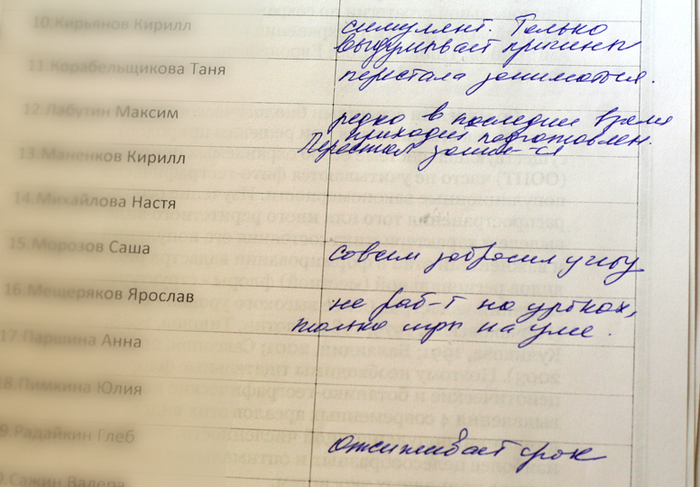 10.Кирьянов Кирилл симулянт. Только
выдумывает причины
11.Корабельщикова Таня перестала заниматься.
12.Лабутин Максим редко в последнее время
приходит подготовлен.
13.Маненков Кирилл Перестал заним-ся
14.Михайлова Настя
15.Морозов Саша совсем забросил учебу
16.Мещеряков Ярослав не раб-т на уроках,
только игры на уме.
17.Паршина Анна
18.Пимкина Юлия
19.Радайкин Глеб отсиживает срок
Сажин Валера